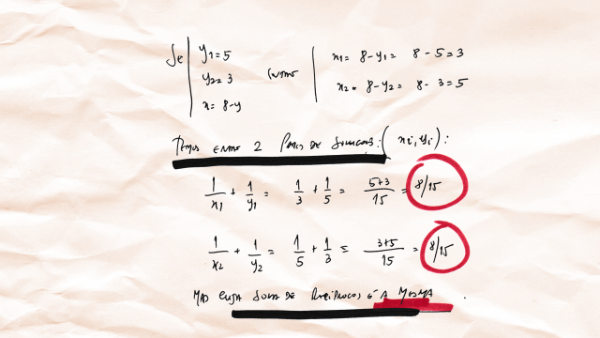 Se | y1 = 5
y2 = 3
x = 8-y
então | x1 = 8-y1 = 8-5 = 3
x2 = 8-y2 = 8-3 = 5
Temos então 2 pares de soluções: (xi, yi):
1/x1 + 1/y1 = 1/3 + 1/5 = 5+3/15 = 8/15
1/x2 + 1/y2 = 1/5 + 1/3 = 3+5/15 = 8/15
Mas cuja soma de recíprocos, é a mesma.